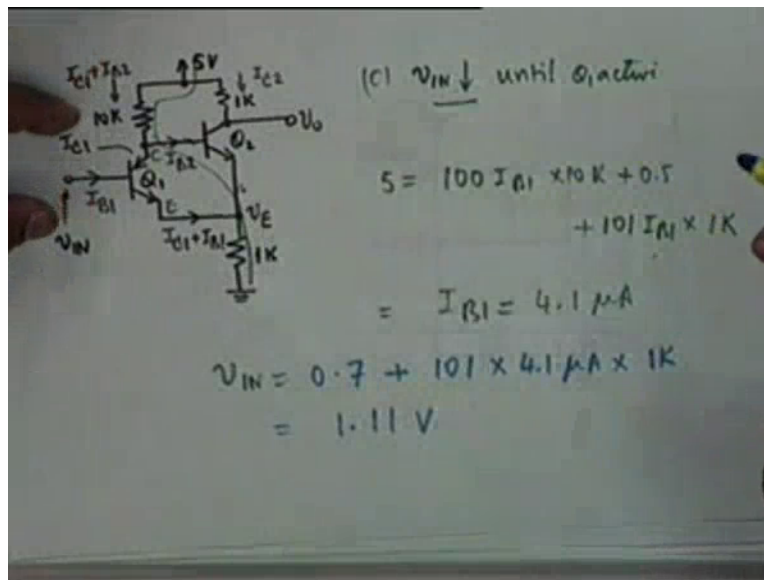 5V
I_C1 + I_B2
I_C2
10K
1K
V_0
I_C1
C
I_B2
Q_2
Q_1
I_B1
E
V_E
V_IN
I_C1 + I_B1
1K
(C) V_IN ↓ until Q_1 activi
5 = 100 I_B1 × 10 K + 0.5
+ 101 I_B1 × 1K
= I_B1 = 4.1 μA
V_IN = 0.7 + 101 × 4.1 μA × 1K
= 1.11 V